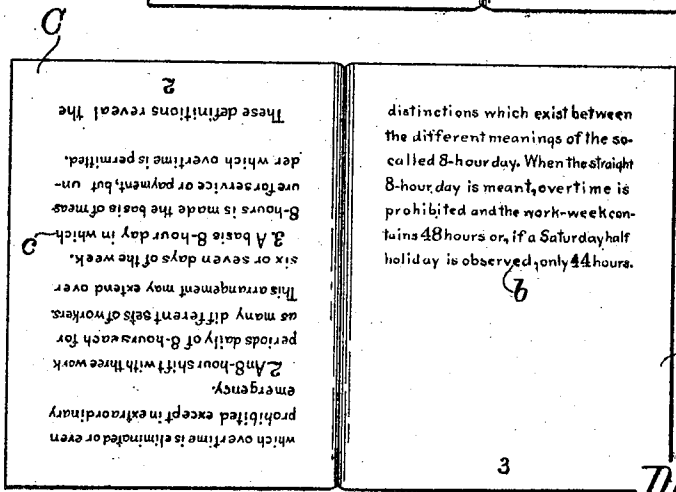 C
which overtime is eliminated or even
prohibited except in extraordinary
emergency.
2. An 8-hour shift with three work
periods daily of 8-hours each for
as many different sets of workers.
This arrangement may extend over
six or seven days of the week.
3. A basis 8-hour day in which
8-hours is made the basis of meas-
ure for service or payment, but un-
der which overtime is permitted.
These definitions reveal the
2
c
distinctions which exist between
the different meanings of the so-
called 8-hour day. When the straight
8-hour day is meant, overtime is
prohibited and the work-week con-
tains 48 hours or, if a Saturday half
holiday is observed, only 44 hours.
b
3